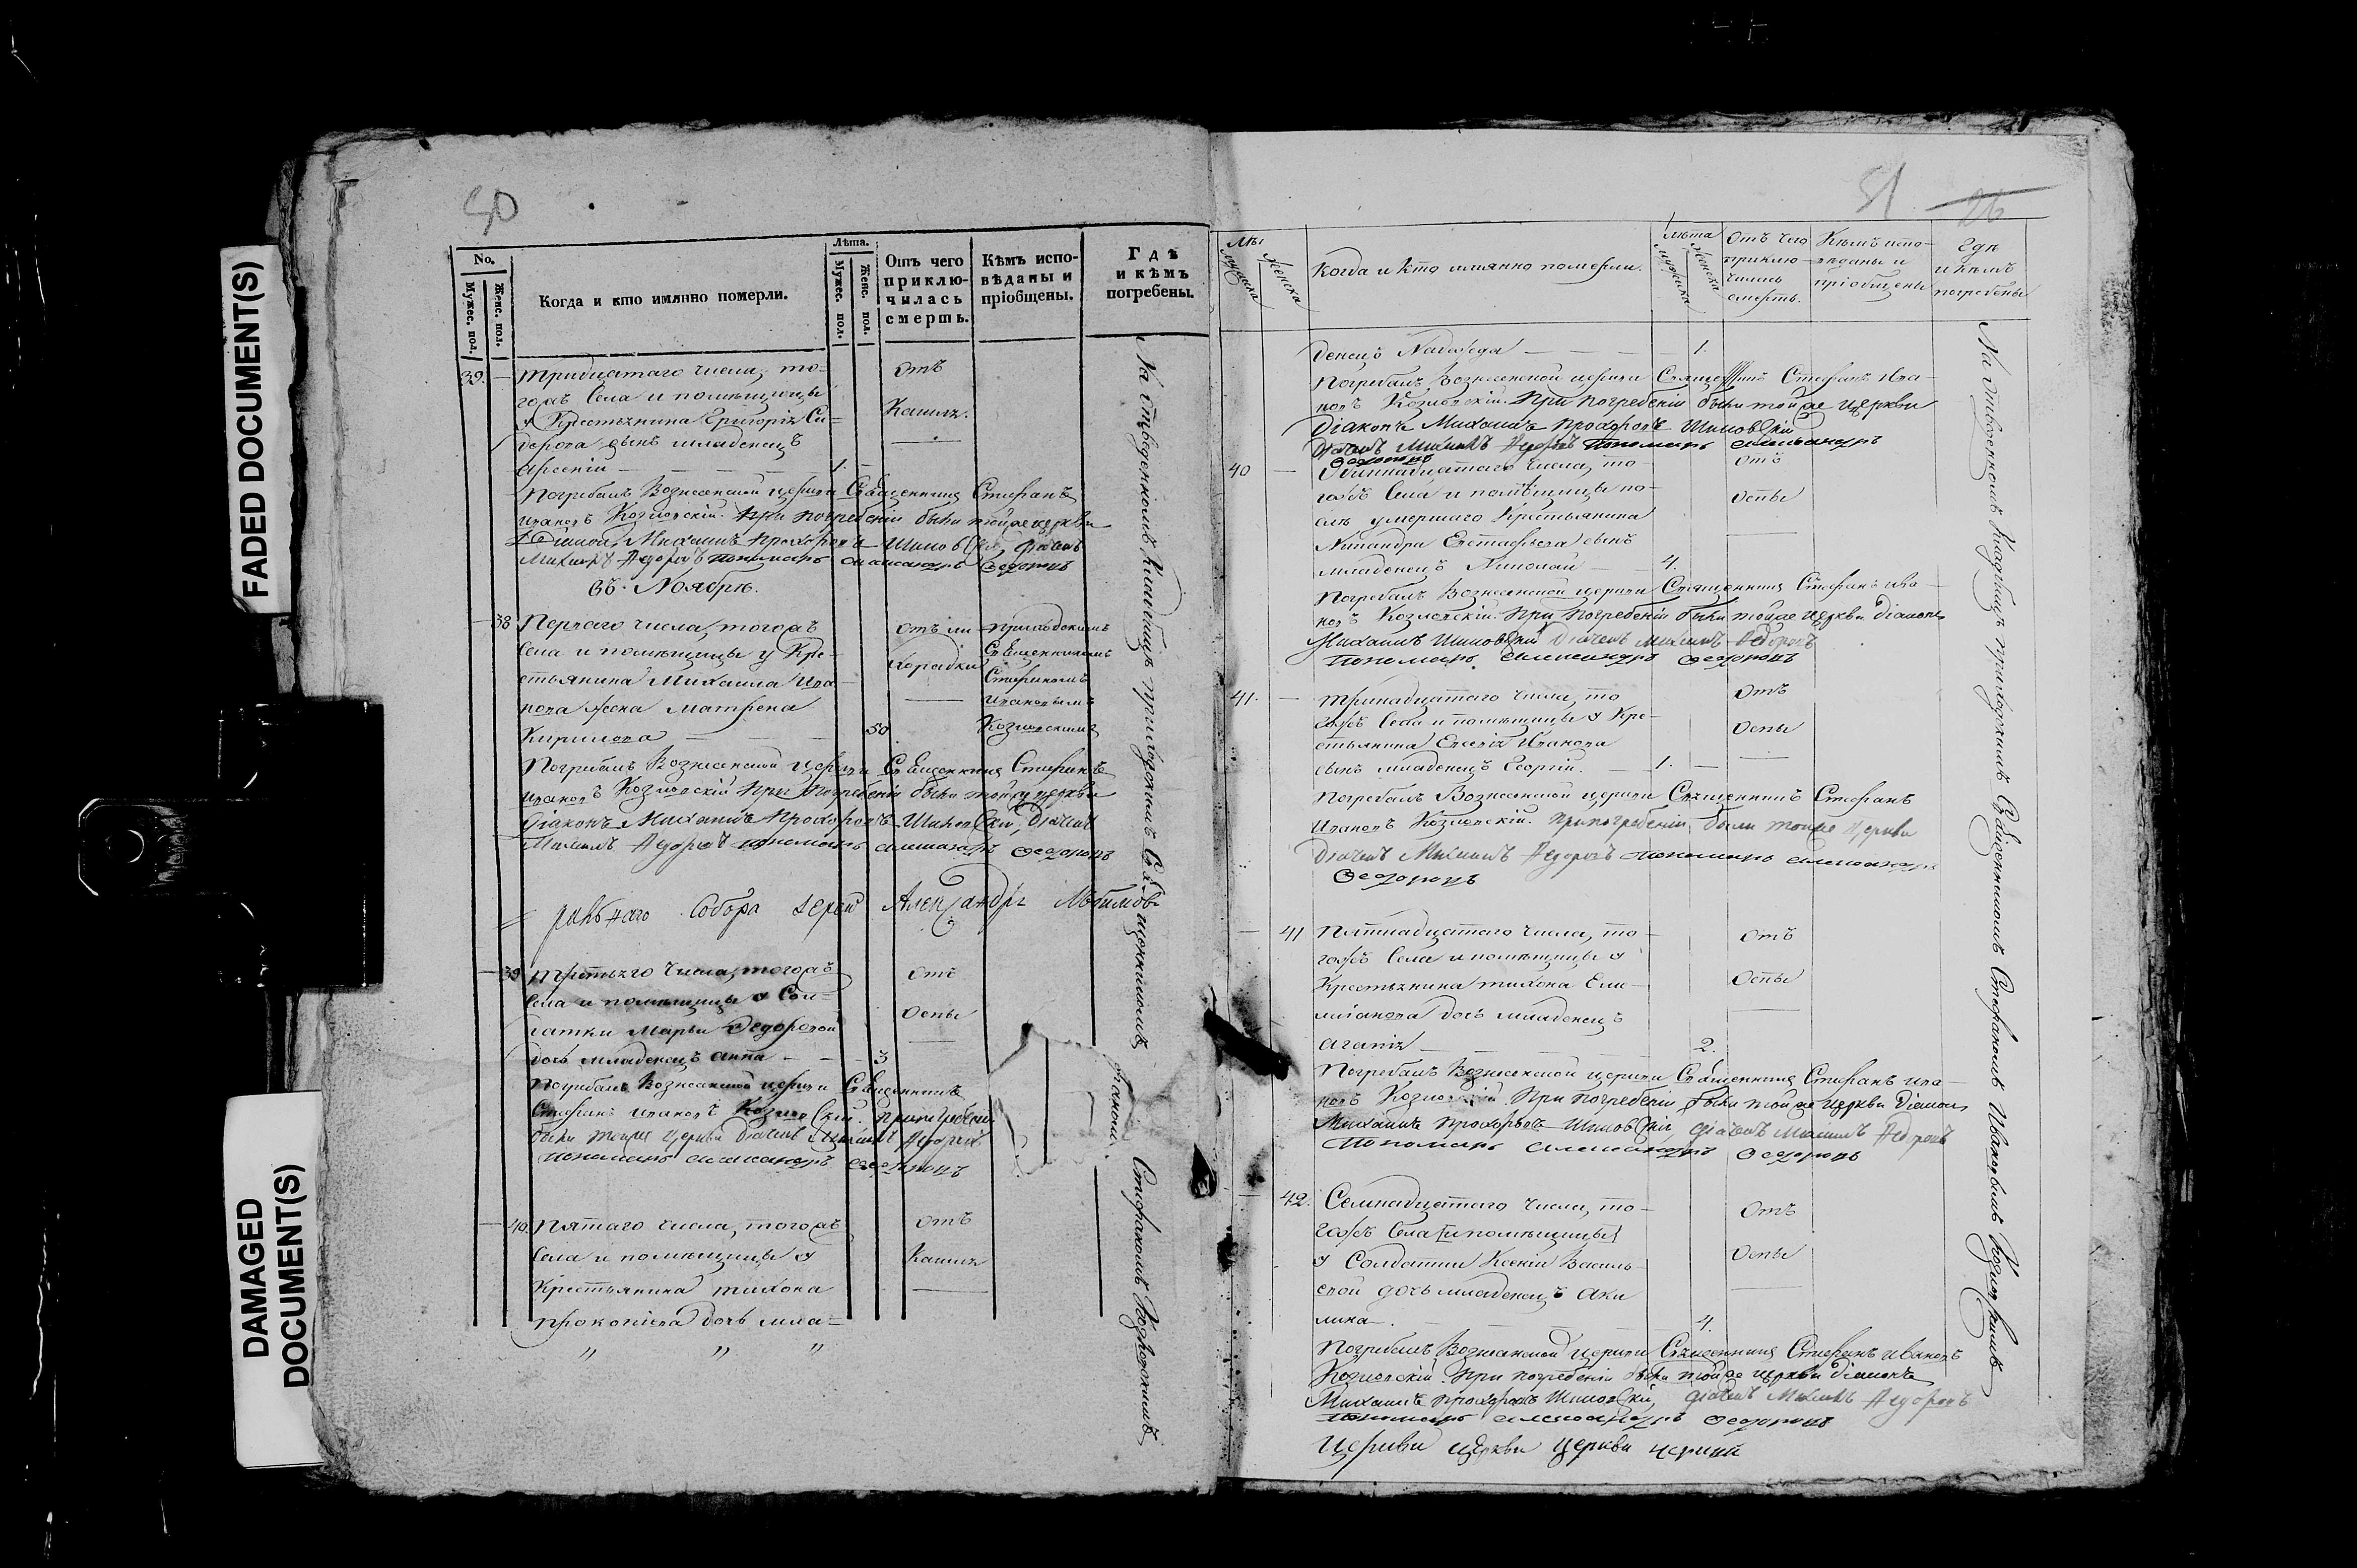 FADED DOCUMENT(S)
DAMAGED
DOCUMENT(S)
50
No.
Мужес. пол.
Женс. пол.
Когда и кто имянно померли.
Лѣта.
Мужес. пол.
Женс. пол.
Отъ чего
приклю-
чилась
смерть.
Кѣмъ испо-
вѣданы и
пріобщены.
Гдѣ
и кѣмъ
погребены.
39. — Тридцатаго числа, то= отъ
гожъ Села и помѣщицы
у Крестьянина Григорія Си= Кашля.
дорова сынъ младенецъ
Арсеній — 1. —
Погребалъ Вознесенской церкви Священникъ Стефанъ
Ивановъ Козловскій. При погребеніи были тойже церкви
Діаконъ Михаилъ Прохоровъ Шиловскій, Дьячекъ
Михаилъ Федоровъ пономарь Александръ Федоровъ
Въ Ноябрѣ.
— 38 Перваго числа, тогожъ отъ ли- Приходскимъ
Села и помѣщицы у Кре- хорадки Священникомъ
стьянина Михаила Ива- Стефаномъ
нова жена Матрена Ивановымъ
Кирилова — 50 Козловскимъ
Погребалъ Вознесенской церкви Священникъ Стефанъ
Ивановъ Козловскій При погребеніи были тойже церкви
Діаконъ Михаилъ Прохоровъ Шиловскій, Дьячекъ
Михаилъ Федоровъ пономарь Александръ Федоровъ
Собора Іерей Александръ
— 39 Третьяго числа, тогожъ отъ
Села и помѣщицы у Сол= Оспы
датки Марьи Федоровой
дочь младенецъ Анна — 3
Погребалъ Вознесенской церкви Священникъ
Стефанъ Ивановъ Козловскій. При погребеніи
были тойже церкви дьячекъ Михаилъ Федоровъ
пономарь Александръ Федоровъ
— 40. Пятаго числа, тогожъ отъ
Села и помѣщицы у Кашля
Крестьянина Тихона
Прокопіева дочь мла=
〃 〃 〃
На отведенномъ Кладбищѣ приходскимъ Священникомъ
Стефаномъ Козловскимъ
51
26
Мужеска
Женска
Когда и кто имянно померли.
Лѣта
мужеска
женска
Отъ чего
приклю-
чилась
смерть.
Кѣмъ испо-
вѣданы и
пріобщены
Гдѣ
и кѣмъ
погребены
денецъ Надежда — 1.
Погребалъ Вознесенской церкви Священникъ Стефанъ Ива-
новъ Козловскій. При погребеніи были тойже церкви
Діаконъ Михаилъ Прохоровъ Шиловскій
Дьячекъ Михаилъ Федоровъ Пономарь Александръ
Федоровъ
40 — Одиннадцатаго числа, то- отъ
гожъ Села и помѣщицы по- оспы
слѣ умершаго Крестьянина
Никандра Евстафьева сынъ
младенецъ Николай — 4.
Погребалъ Вознесенской церкви Священникъ Стефанъ Ива-
новъ Козловскій. При погребеніи были тойже церкви Діаконъ
Михаилъ Шиловскій Дьячекъ Михаилъ Федоровъ
Пономарь Александръ Федоровъ
41. — Тринадцатаго числа, то отъ
гожъ Села и помѣщицы у Кре- Оспы
стьянина Евсевія Иванова
сынъ младенецъ Георгій. — 1. —
Погребалъ Вознесенской церкви Священникъ Стефанъ
Ивановъ Козловскій. При погребеніи были тойже Церкви
Дьячекъ Михаилъ Федоровъ пономарь Александръ
Федоровъ
— 41 Пятнадцатаго числа, то- отъ
гожъ Села и помѣщицы у
Крестьянина Тихона Еме- Оспы
ліанова дочь младенецъ
Агапія — 2.
Погребалъ Вознесенской церкви Священникъ Стефанъ Ива-
новъ Козловскій. При погребеніи были тойже церкви Діаконъ
Михаилъ Прохоровъ Шиловскій, дьячекъ Михаилъ Федоровъ
Пономарь Александръ Федоровъ
— 42. Семнадцатаго числа, то- Отъ
гожъ Села и помѣщицы
у Солдатки Ксеніи Василь- Оспы
евой дочь младенецъ Аки
лина — 4.
Погребалъ Вознесенской церкви Священникъ Стефанъ Ивановъ
Козловскій. При погребеніи были тойже церкви Діаконъ
Михаилъ Прохоровъ Шиловскій, дьячекъ Михаилъ Федоровъ
пономарь Александръ Федоровъ
Церкви церкви церкви церкви
На отведенномъ Кладбищѣ приходскимъ Священникомъ Стефаномъ Ивановымъ Козловскимъ